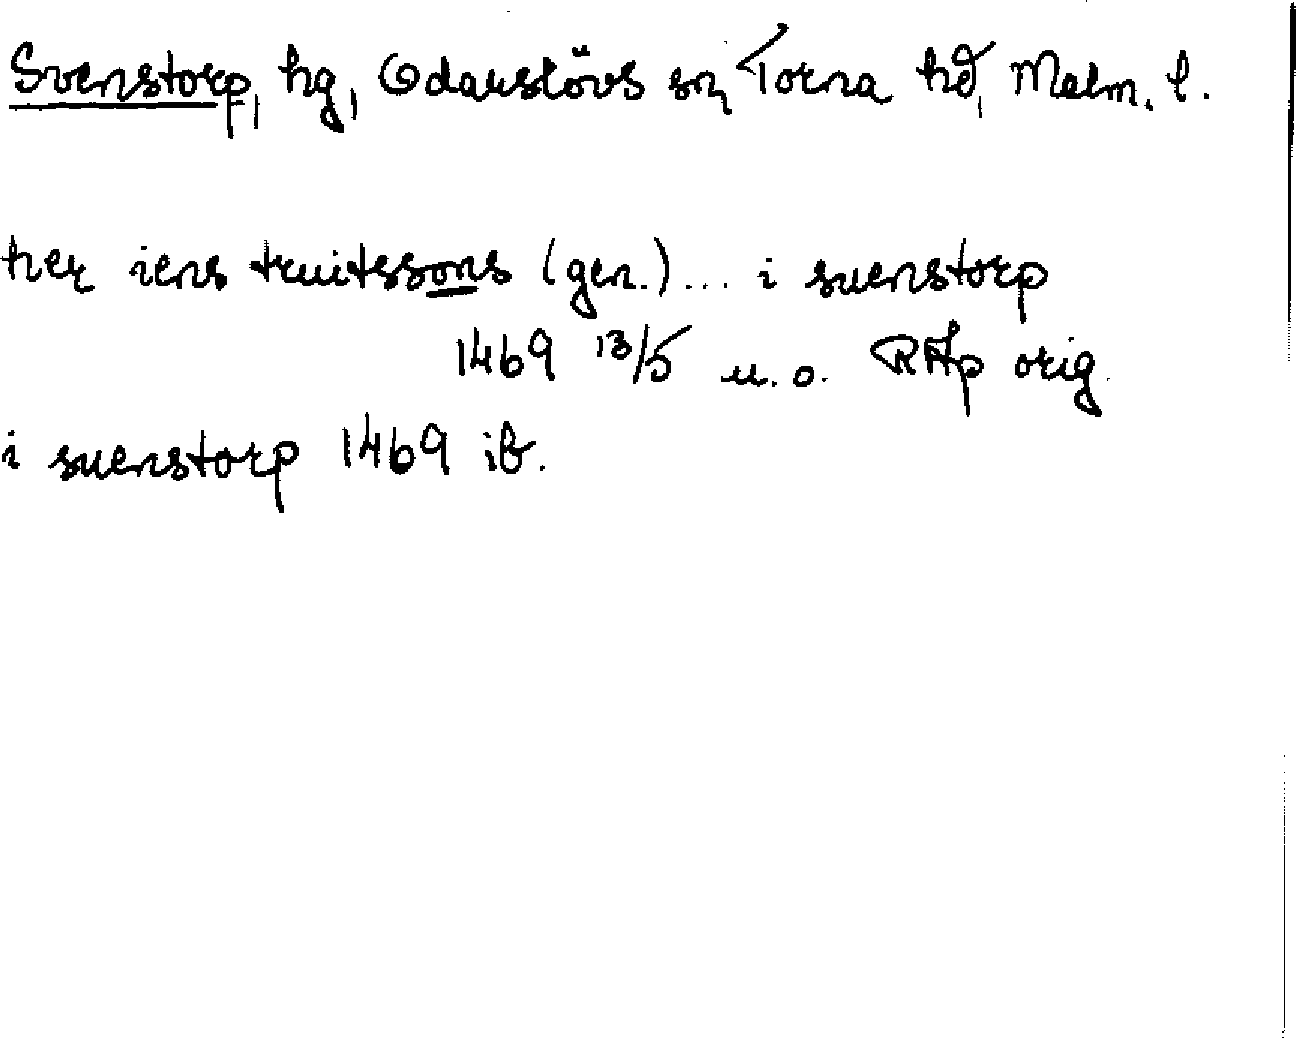 Svenstorp, hg, Odarslövs sn, Torna hd, Malm. l.
her iens truitssons (gen.) ... i suenstorp
1469 13/5 u.o. RAp orig.
i suenstorp 1469 ib.